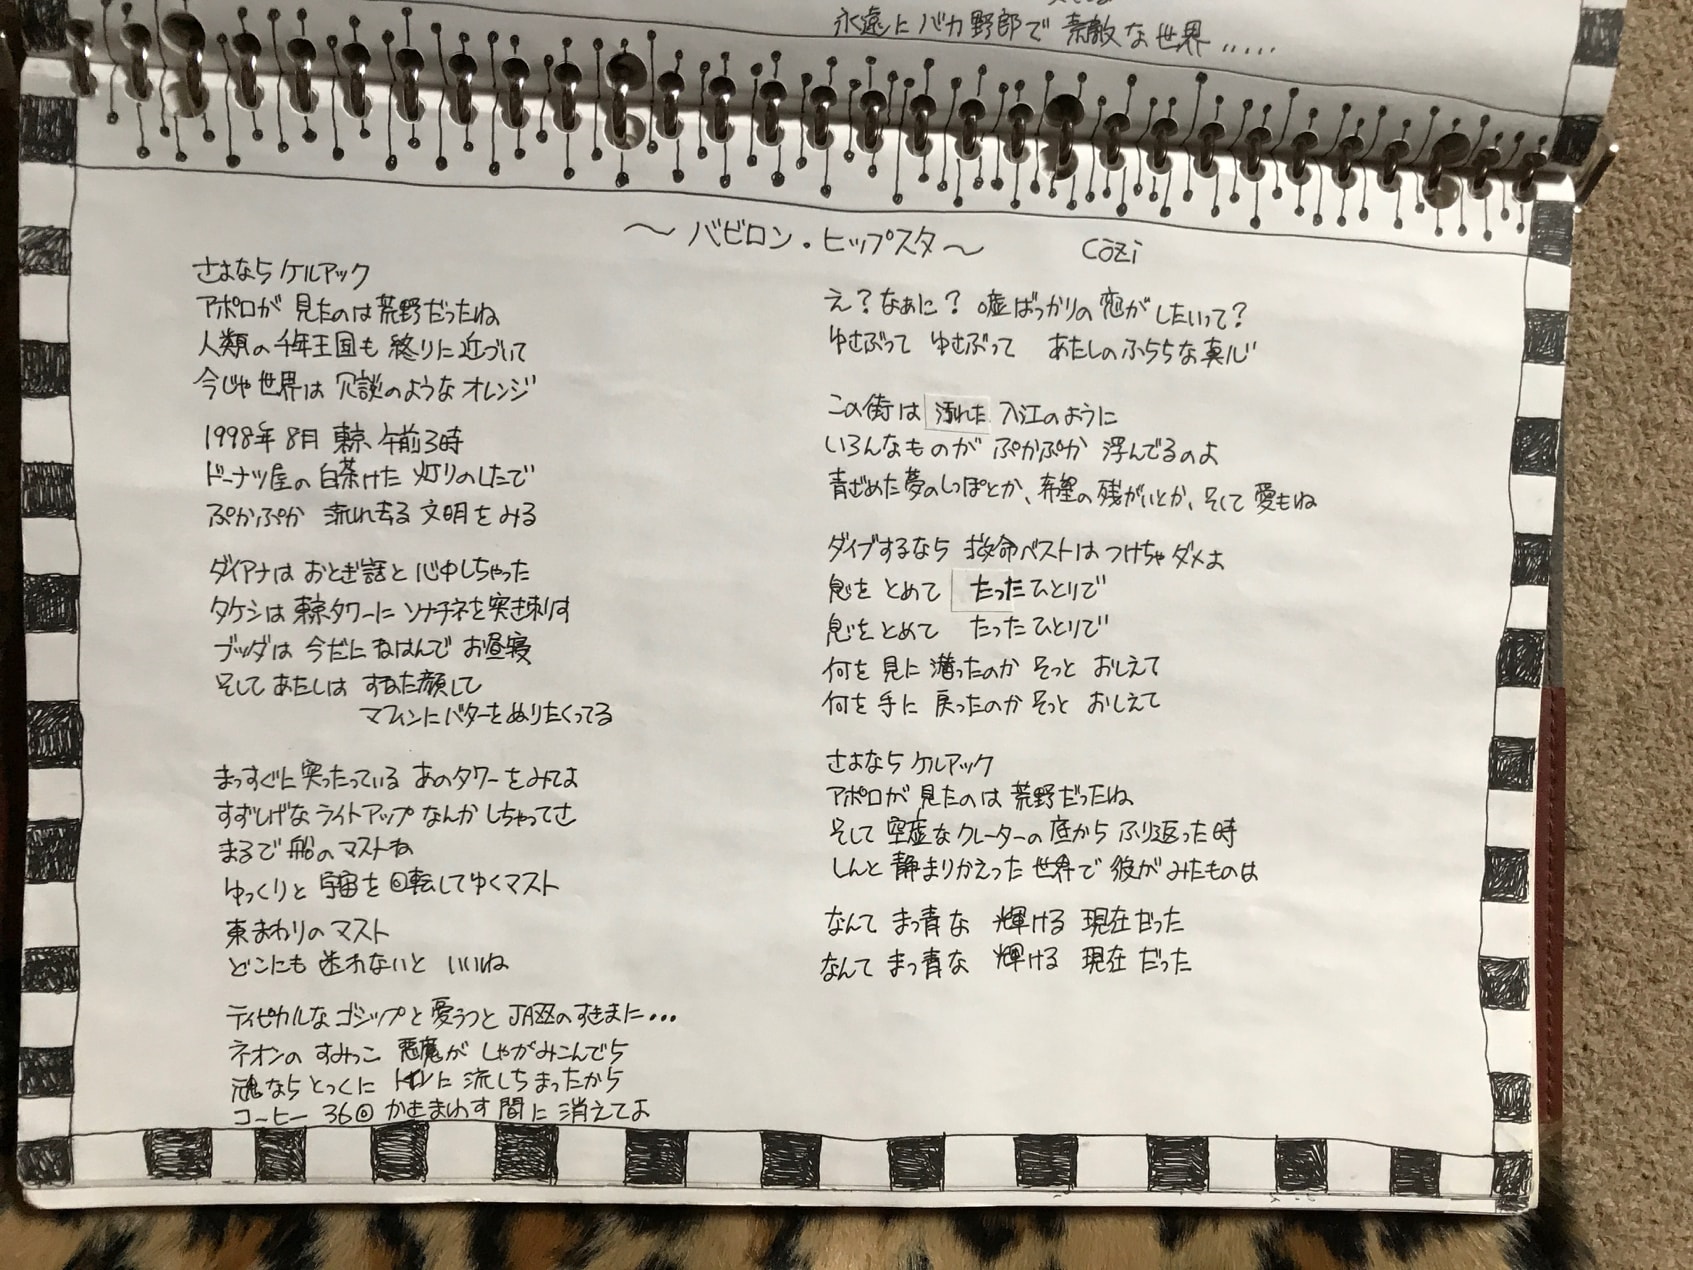 永遠にバカ野郎で 素敵な世界.....
～ バビロン・ヒップスタ ～ Cozi
さよなら ケルアック
アポロが 見たのは 荒野だったね
人類の 千年王国も 終りに 近づいて
今じゃ 世界は 冗談のような オレンジ
1998年 8月 東京 午前3時
ドーナツ屋の 白茶けた 灯りのしたで
ぷかぷか 流れ去る 文明を みる
ダイアナは おとぎ話と 心中しちゃった
タケシは 東京タワーに ソナチネを 突き刺す
ブッダは 今だに ねはんで お昼寝
そして あたしは すねた顔して
マフィンにバターをぬりたくってる
まっすぐに 突ったっている あのタワーを みてよ
すずしげな ライトアップ なんか しちゃってさ
まるで 船の マストね
ゆっくりと 宇宙を 回転して ゆくマスト
東まわりの マスト
どこにも 座礁 しないと いいね
ティピカルな ゴシップと 憂うつと JAZZの すきまに...
ネオンの すみっこ 悪魔が しゃがみこんでら
魂なら とっくに トイレに 流しちまったから
コーヒー 36回 かきまわす 間に 消えてよ
え？なぁに？ 嘘ばっかりの 恋が したいって？
ゆさぶって ゆさぶって あたしの ふららな 真心
この街は 汚れた 入江のように
いろんなものが ぷかぷか 浮んでるのよ
青ざめた 夢の しっぽとか、希望の 残がいとか、そして 愛もね
ダイブするなら 救命ベストは つけちゃ ダメよ
息を とめて たったひとりで
息を とめて たったひとりで
何を 見に 潜ったのか そっと おしえて
何を 手に 戻ったのか そっと おしえて
さよなら ケルアック
アポロが 見たのは 荒野だったね
そして 空虚な クレーターの 底から ふり返った 時
しんと 静まりかえった 世界で 彼が みたものは
なんて まっ青な 輝ける 現在だった
なんて まっ青な 輝ける 現在 だった